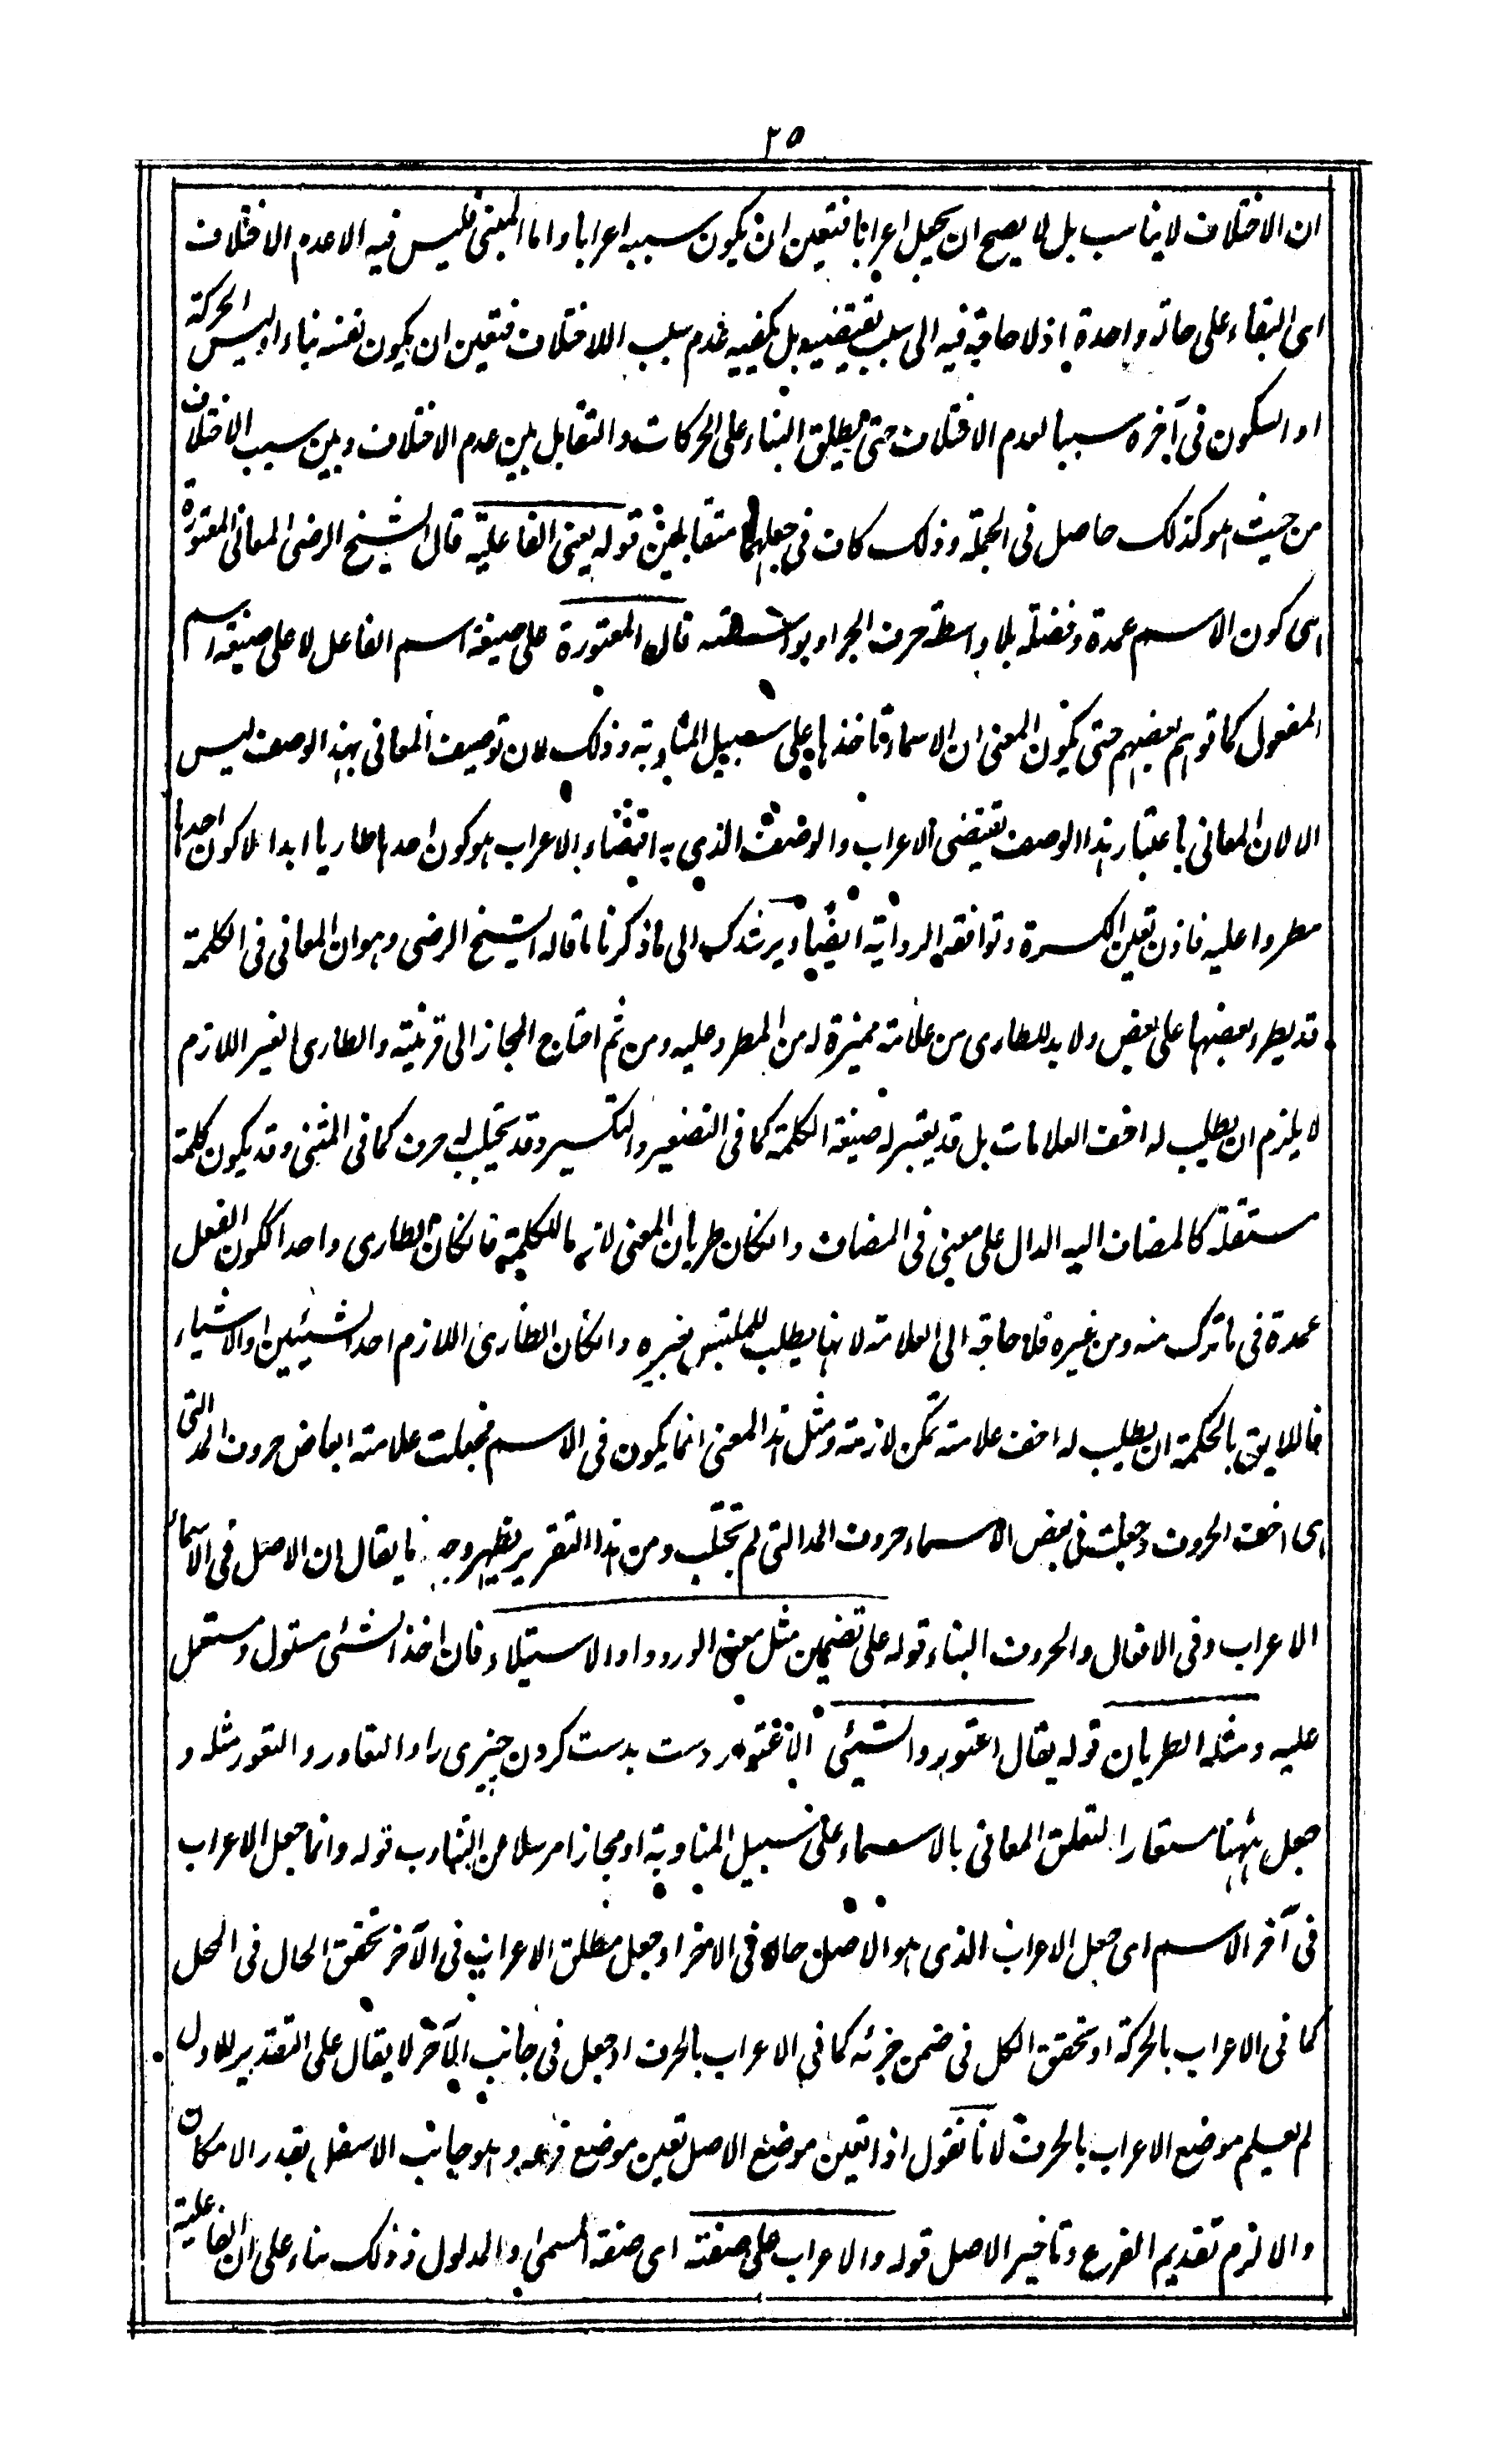 ٢٥
ان الاختلاف لا يناسب بل لا يصح ان يجعل اعرابا فتعين ان يكون سببه اعرابا واما المبنى فليس فيه الا عدم الاختلاف
اى البقاء على حالة واحدة اذ لا حاجة فيه الى سبب يقتضيه بل يكفيه عدم سبب الاختلاف فتعين ان يكون نفسه بناء اذ ليس الحركة
او السكون فى آخره سببا لعدم الاختلاف حتى يطلق البناء على الحركات والتقابل بين عدم الاختلاف وبين سبب الاختلاف
من حيث هو كذلك حاصل فى الجملة وذلك كاف فى جعلهما متقابلين قوله يعنى الفاعلية قال الشيخ الرضى المعانى المعتورة
اى كون الاسم عمدة وفضلة بلا واسطة حرف الجر او بواسطته قال المعتورة على صيغة اسم الفاعل لا على صيغة اسم
المفعول كما توهم بعضهم حتى يكون المعنى ان الاسماء تاخذها على سبيل المناوبة وذلك لان توصيف المعانى بهذا الوصف ليس
الا لان المعانى باعتبار هذا الوصف تقتضى الاعراب والوصف الذى به اقتضاء الاعراب هو كون احدها طاريا ابدا لا كون احدها
مطروا عليه فاذن تعين الكسرة وتوافقه الرواية ايضا ويرشدك الى ما ذكرنا ما قاله الشيخ الرضى وهو ان المعانى فى الكلمة
قد يطرو بعضها على بعض ولا بد للطارى من علامة مميزة له من المطرو عليه ومن ثم احتاج المجاز الى قرينة والطارى الغير اللازم
لا يلزم ان يطلب له اخف العلامات بل قد يغير له صيغة الكلمة كما فى التصغير والتكسير وقد يجتلب له حرف كما فى المثنى وقد يكون كلمة
مستقلة كالمضاف اليه الدال على معنى فى المضاف وان كان طريان المعنى لازما للكلمة فان كان الطارى واحدا ككون الفعل
عمدة فى ما تركب منه ومن غيره فلا حاجة الى العلامة لانها يطلب للملتبس بغيره وان كان الطارى اللازم احد الشيئين او الاشياء
فاللايق بالحكمة ان يطلب له اخف علامة تمكن لازمة ومثل هذا المعنى انما يكون فى الاسم فجعلت علامته ابعاض حروف المد التى
هى اخف الحروف وجعلت فى بعض الاسماء حروف المد التى لم تجتلب ومن هذا التقرير يظهر وجه ما يقال ان الاصل فى الاسماء
الاعراب وفى الافعال والحروف البناء قوله على تضمين مثل معنى الورود او الاستيلاء فان اخذ الشئ مستول ومستعل
عليه ومثله الطريان قوله يقال اعتوروا الشيئى الاعتوار دست بدست كردن چيزى را والتعاور والتعور مثله و
جعل ههنا مستعارا لتعلق المعانى بالاسماء على سبيل المناوبة او مجازا مرسلا عن التناوب قوله وانما جعل الاعراب
فى آخر الاسم اى جعل الاعراب الذى هو الاصل حالا فى الاخر او جعل مطلق الاعراب فى الآخر تحقق الحال فى المحل
كما فى الاعراب بالحركة او تحقق الكل فى ضمن جزئه كما فى الاعراب بالحرف او جعل فى جانب الآخر لا يقال على التقدير الاول
لم يعلم موضع الاعراب بالحرف لانا نقول اذا تعين موضع الاصل تعين موضع فرعه وهو جانب الاسفل بقدر الامكان
والا لزم تقديم الفرع وتاخير الاصل قوله والاعراب على صفته اى صفة المسمى والمدلول وذلك بناء على ان الفاعلية